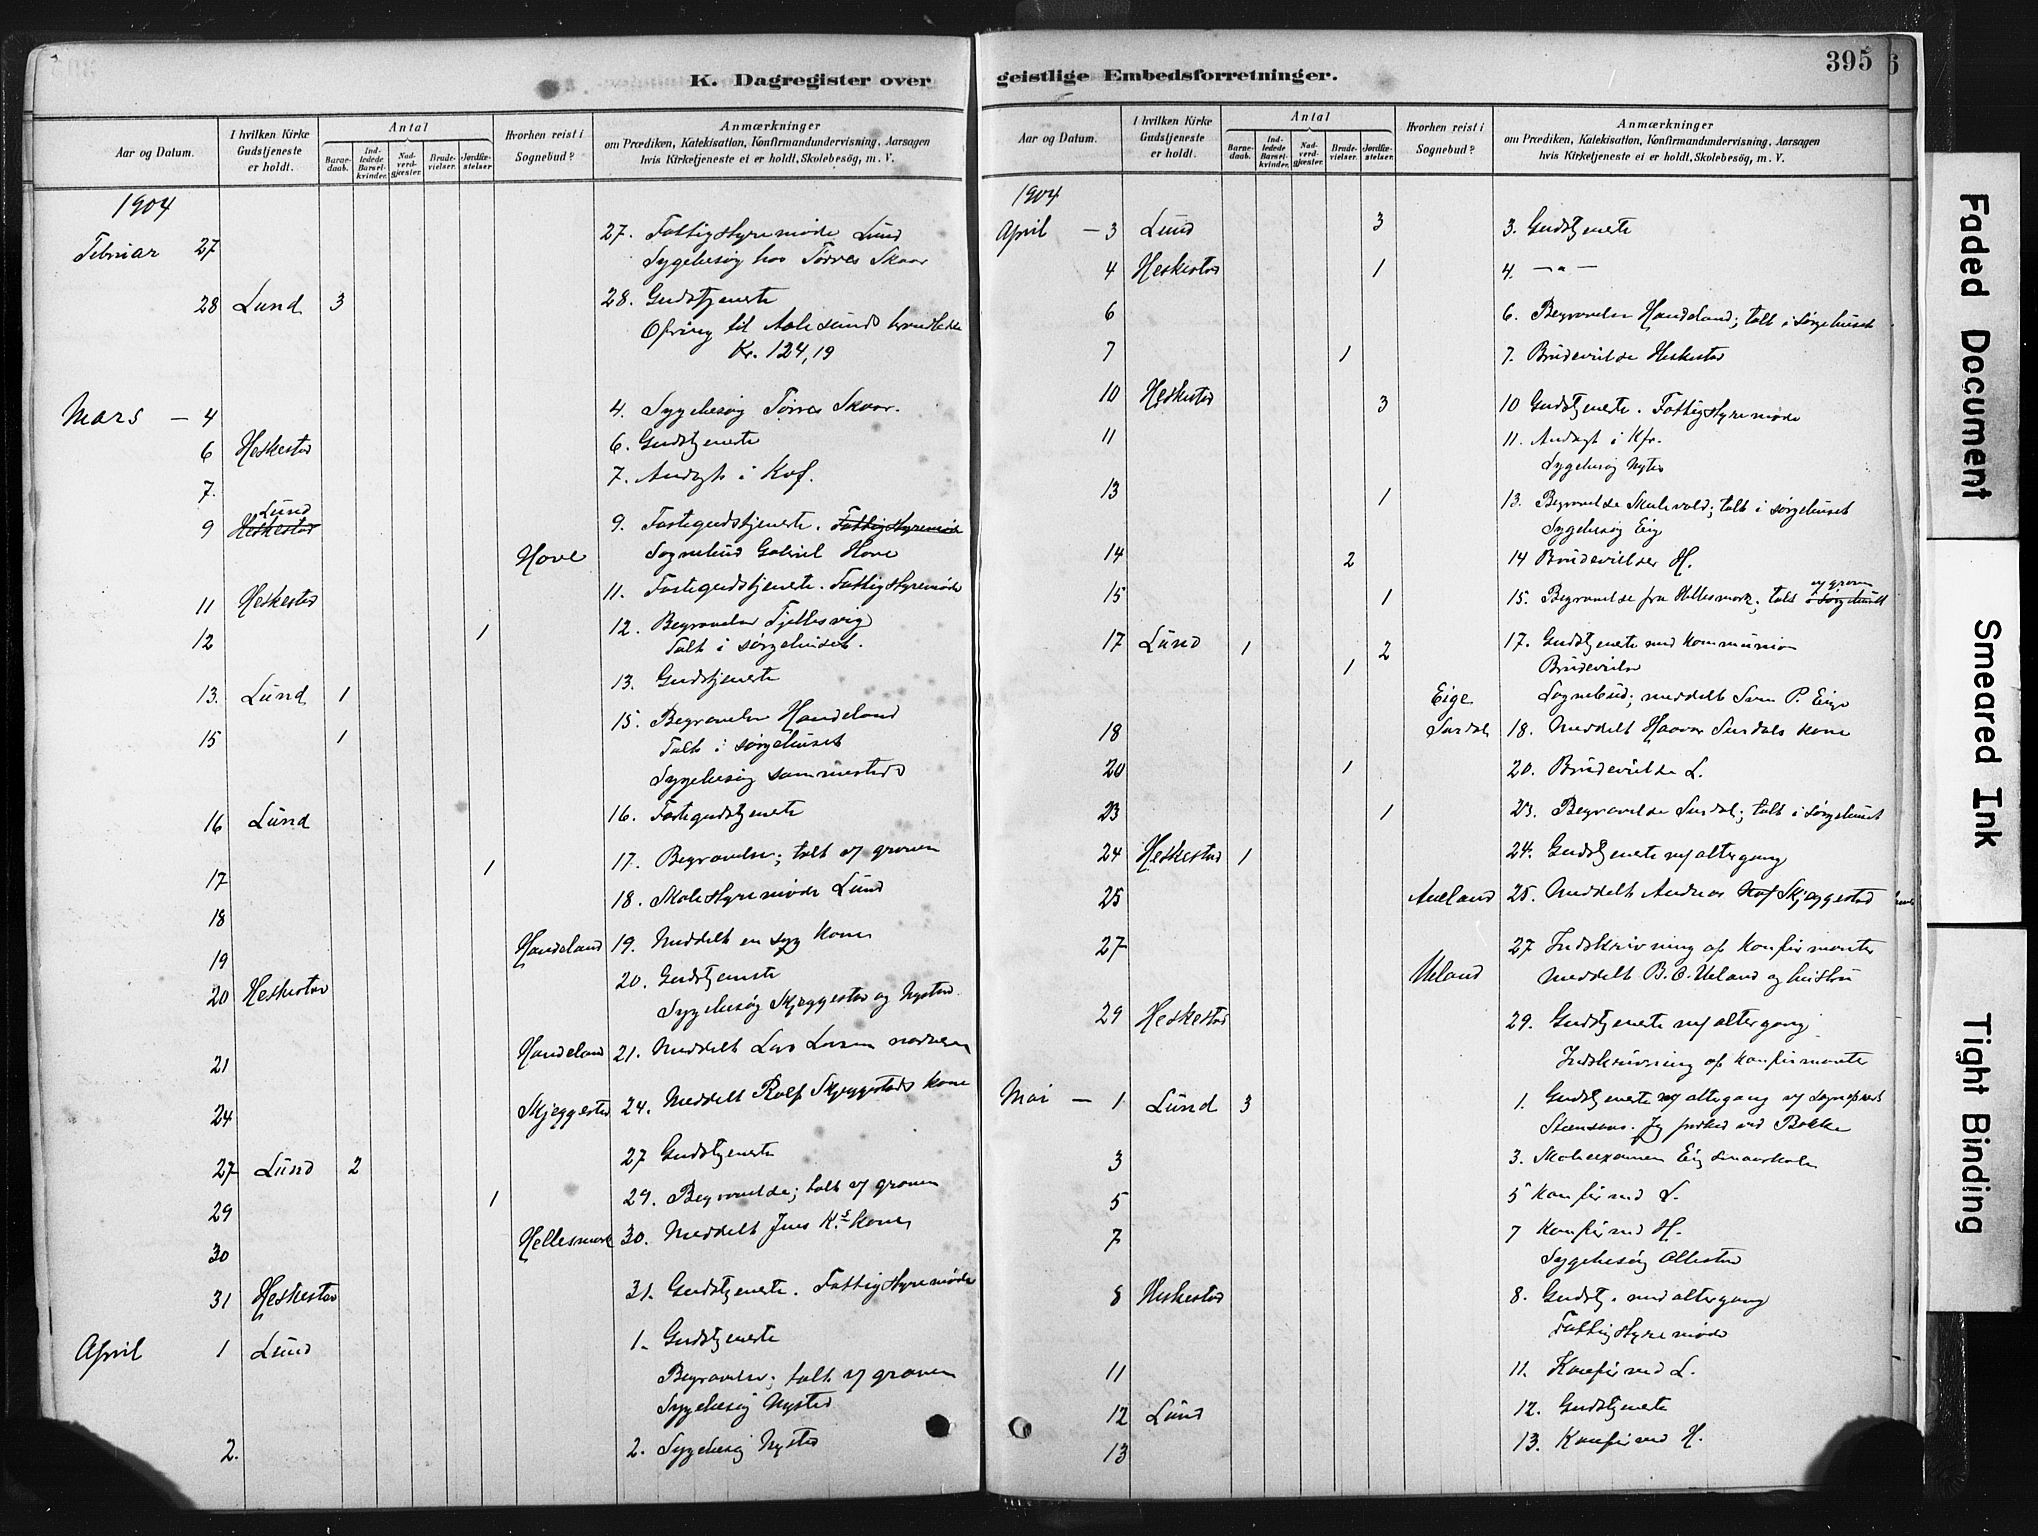 K. Dagregister over
Aar og Datum.
I hvilken Kirke Gudstjeneste er holdt.
Antal
Barnedaab.
Indledede Barselkvinder.
Nadverdgjæster.
Brudevielser.
Jordfæstelser.
Hvorhen reist i Sognebud?
Anmærkninger
om Prædiken, Katekisation, Konfirmandundervisning, Aarsagen
hvis Kirketjeneste ei er holdt, Skolebesög, m. V.
1904
Februar 27 27. Fattigstyremøde Lund
Sygebesøg hos Tørres Skaar
28 Lund 3 28. Gudstjeneste
Ofring til Aalesunds
Kr. 124,19
Mars - 4 4. Sygebesøg Tørres Skaar.
6 Heskestad 6. Gudstjeneste
7. 7. Andagt i Kof.
Lund
9 Heskestad 9. Fastegudstjeneste. Fattigstyremøde
Hove Sognebud Gabriel Hove
11 Heskestad 11. Fastegudstjeneste. Fattigstyremøde
12 1 12. Begravelse Fjellesvig
Talt i sørgehuset.
13. Lund 1 13. Gudstjeneste
15 1 15. Begravelse Handeland
Talt i sørgehuset
Sygebesøg sammesteds
16 Lund 16. Fastegudstjeneste
17 1 17. Begravelse; talt v/ graven
18 18. Skolestyremøde Lund
19 Handeland 19. Meddelt en syg kone
20 Heskestad 20. Gudstjeneste
Sygebesøg Skjeggestad og Nystad
21 Handeland 21. Meddelt Lars Larsen
24 Skjeggestad 24. Meddelt Rolf Skjeggestads kone
27 Lund 2 27 Gudstjeneste
29 1 29. Begravelse; talt v/ graven
30 Hellesmark 30. Meddelt Jens K.s kone
31 Heskestad 31. Gudstjeneste. Fattigstyremøde
April 1 Lund 1. Gudstjeneste
Begravelse; talt v/ graven
Sygebesøg Nystad
2. 2. Sygebesøg Nystad
geistlige Embedsforretninger.
395
6
Aar og Datum.
I hvilken Kirke Gudstjeneste er holdt.
Antal
Barnedaab.
Indledede Barselkvinder.
Nadverdgjæster.
Brudevielser.
Jordfæstelser.
Hvorhen reist i Sognebud?
Anmærkninger
om Prædiken, Katekisation, Konfirmandundervisning, Aarsagen
hvis Kirketjeneste ei er holdt, Skolebesög, m. V.
1904
April - 3 Lund 3 3. Gudstjeneste
4 Heskestad 1 4. - " -
6 6. Begravelse Handeland; talt i sørgehuset
7 1 7. Brudevielse Heskestad
10 Heskestad 3 10 Gudstjeneste. Fattigstyremøde
11 11. Andagt i Kfr.
Sygebesøg Nystad
13 1 13. Begravelse Skalevold; talt i sørgehuset
Sygebesøg Eig
14 2 14 Brudevielser H.
15 1 15. Begravelse fra Hellesmark; talt i sørgehuset v/ graven
17 Lund 1 2 17. Gudstjeneste med kommunion
1 Brudevielse
Eige Sognebud; meddelt Sven P. Eige
18 Surdal 18. Meddelt Haavar Surdals kone
20 1 20. Brudevielse L.
23 1 23. Begravelse Surdal; talt i sørgehuset
24 Heskestad 1 24. Gudstjeneste m/ altergang
25 Aaeland 25. Meddelt Andreas Skjeggestad
27 27 Indskrivning af konfirmanter
Ueland Meddelt B. O. Ueland og hustru
29 Heskestad 29. Gudstjeneste m/ altergang
Indskrivning af konfirmanter
Mai - 1 Lund 3 1. Gudstjeneste m/ altergang v/ sogneprest
Stensen. Jeg præked ved Bakke
3 3. Skoleexamen Eig smaaskole
5 5 Konfirmand L.
7 7 Konfirmand H.
Sygebesøg
8 Heskestad 8. Gudstj. med altergang
Fattigstyremøde
11 11. Konfirmand L.
12 Lund 12. Gudstjeneste
13 13. Konfirmand H.
Faded Document
Smeared Ink
Tight Binding